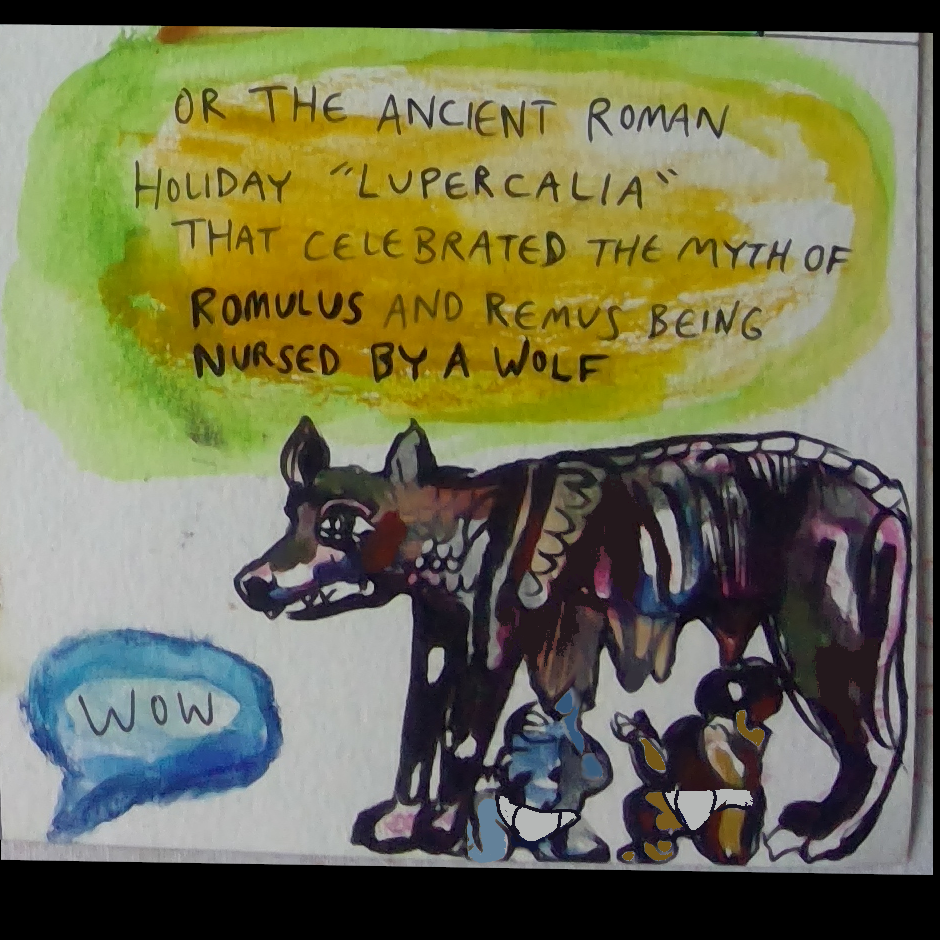 OR THE ANCIENT ROMAN
HOLIDAY "LUPERCALIA"
THAT CELEBRATED THE MYTH OF
ROMULUS AND REMUS BEING
NURSED BY A WOLF
WOW